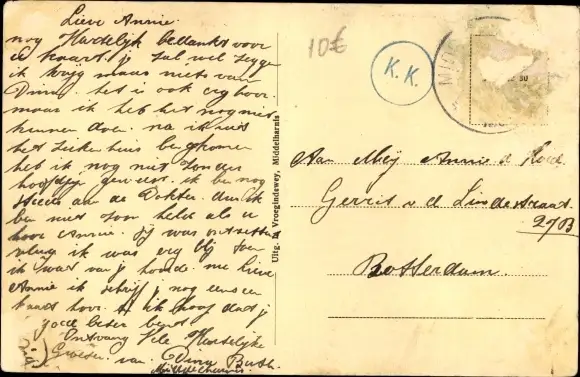 Lieve Annie
nog Hartelijk bedankt voor
je kaart je zal wel zeggen
ik krijg maar niets van
Dina. het is ook erg hoor.
maar ik heb het nog niet
kunnen doen. na ik uit
het Ziekenhuis ben gekomen
heb ik nog niet zonder
hoofdpijn geweest. ik ben nog
steeds aan de Dokter.
ben niet
hoor Annie. jij was
ik was erg blij toen
ik wat van je hoorde. nu Lieve
Annie ik schrijf je nog eens een
kaart hoor. ik hoop dat je
goed beter bent
Ontvang Vele Hartelijke
Groeten van Dina
Middelharnis
10€
K. K.
Uitg. D. Vroegindewey, Middelharnis
Aan Mej Annie de
Gerrit v d Lindestraat
27B
Rotterdam.